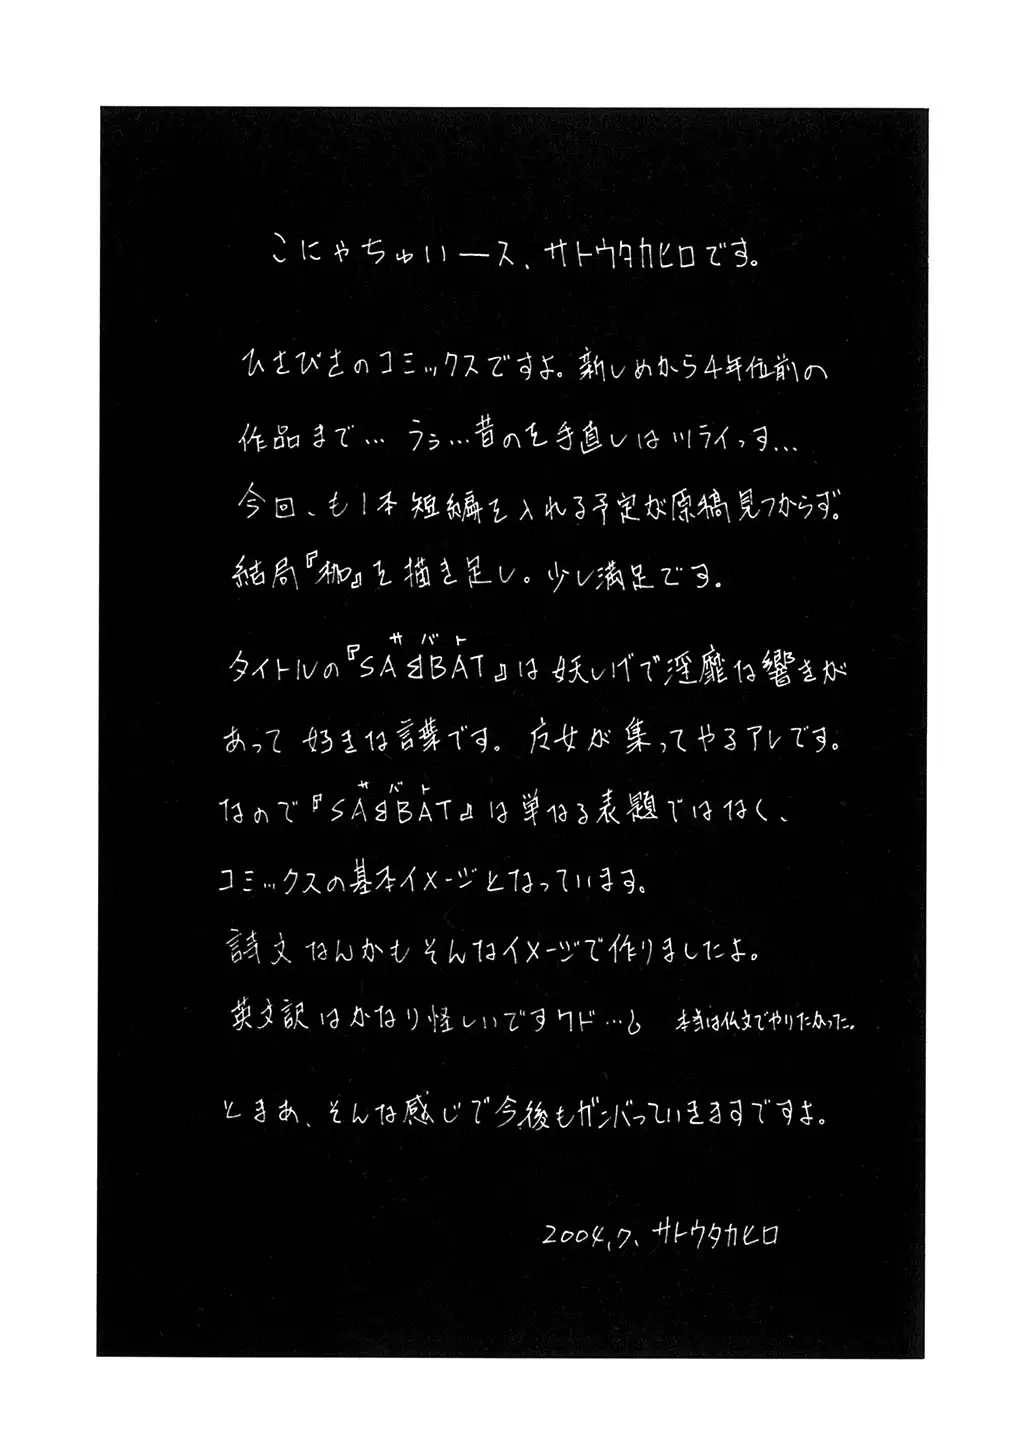 こにゃちゅいース、サトウタカヒロです。
ひさびさのコミックスですよ。新しめから4年位前の
作品まで… うぅ…昔のを手直しはツライっす…
今回、も1本短編を入れる予定が原稿見つからず。
結局『枷』を描き足し。少し満足です。
サバト
タイトルの『SABBAT』は妖しげで淫靡な響きが
あって好きな言葉です。魔女が集ってやるアレです。
サバト
なので『SABBAT』は単なる表題ではなく、
コミックスの基本イメージとなっています。
詩文なんかもそんなイメージで作りましたよ。
英文訳はかなり怪しいですケド…。 本当は仏文でやりたかった。
とまぁ、そんな感じで今後もガンバっていきますですよ。
2004,7、サトウタカヒロ